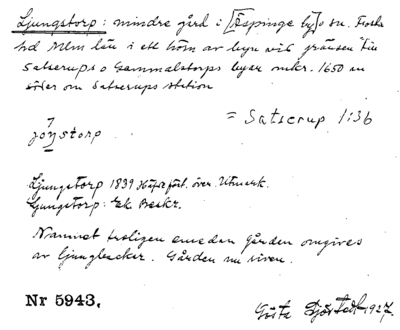 Ljungstorp: mindre gård i [Espinge by] o sn. Frosta
hd Mlm län i ett hörn av byn vid gränsen till
Satserups o Gammalstorps byar omkr. 1650 m
söder om Satserups station
= Satserup 1:36
Ljungstorp 1839 över Utmark.
Ljungstorp: Ek. Beskr.
Namnet troligen emedan gården omgives
av ljungbackar. Gården nu riven.
Nr 5943.
Gösta 1927.